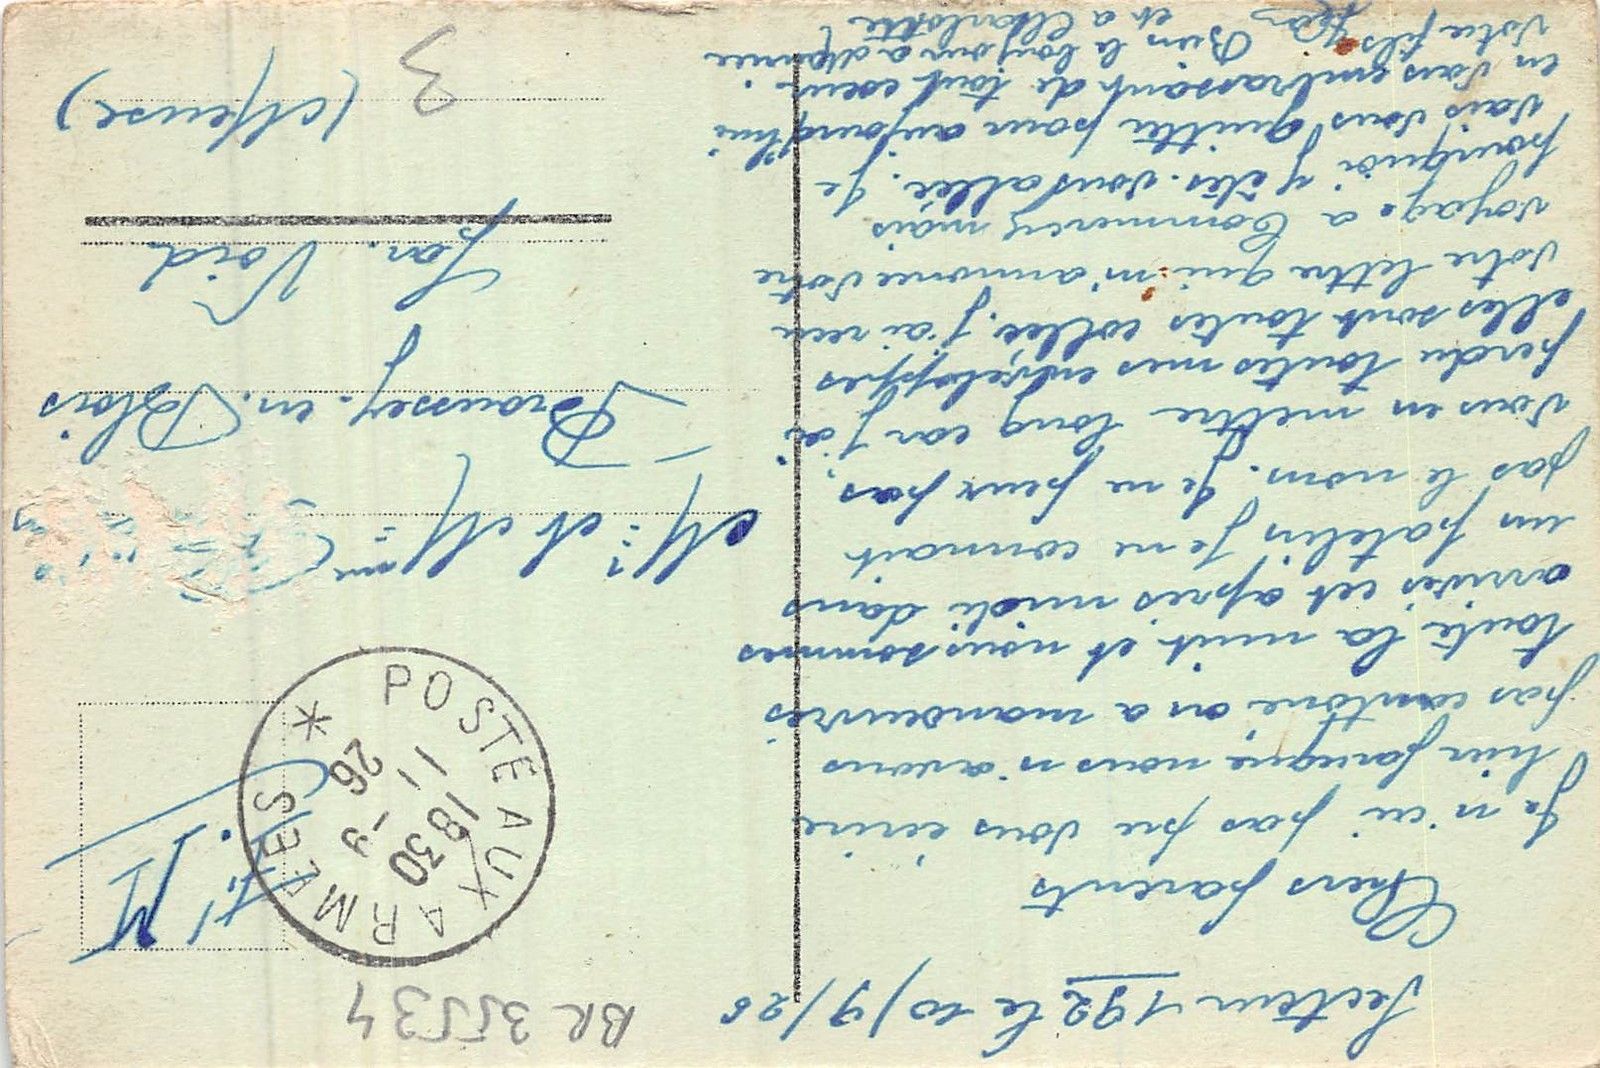 Secteur 192 le 10/9/26
Chers parents
Je n'ai pas pu vous écrire
hier parceque nous n'avons
pas cantoné, on a manoeuvrés
toute la nuit et nous sommes
arrivés cet apres midi dans
un patelin je ne connait
pas le nom. Je ne peux pas,
vous en mettre long car j'ai
perdu toutes mes enveloppes
elles sont toutes collée, j'ai reçu
votre lettre qui m'annonce votre
voyage a Commercy mais
pourquoi y êtes-vous allée. Je
vais vous quitter pour aujourd'hui
en vous embrassant de tout coeur.
Votre fils Bien le bonjour a
et a Charlotte
Jean
BR 35534
F. M.
POSTE AUX ARMEES *
1830
11 - 9
26
Mr et Mme
Broussey-en-Blois
par Void
(Meuse)
3